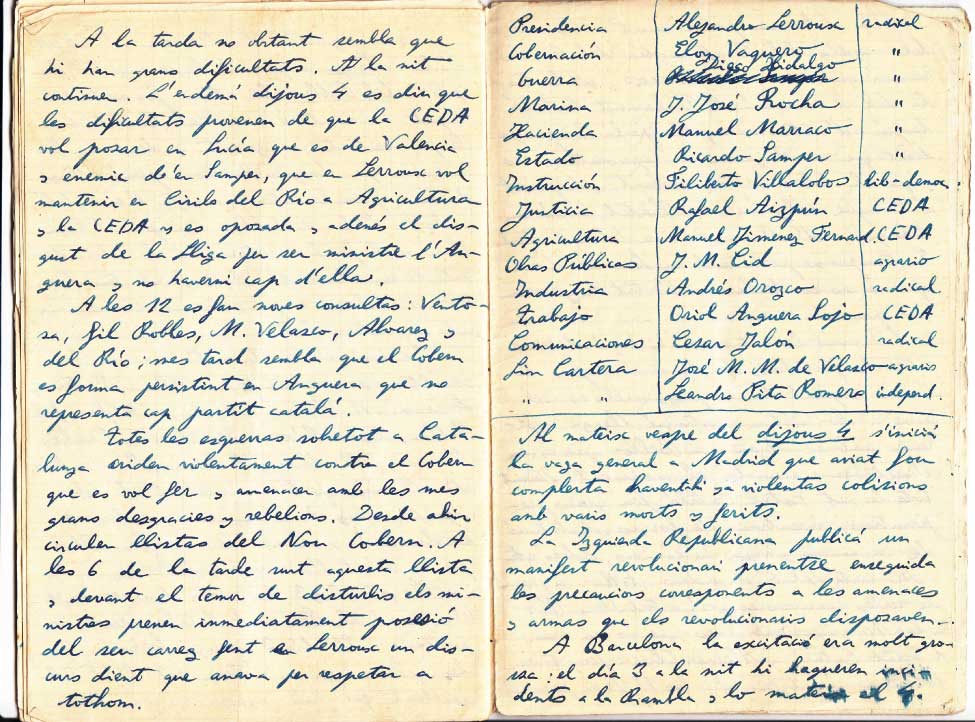 A la tarda no obstant sembla que
hi han grans dificultats. A la nit
continuen. L'endemá dijous 4 es diu que
les dificultats provenen de que la CEDA
vol posar en Lucía que es de Valencia
y enemic d'en Samper, que en Lerroux vol
mantenir en Cirilo del Río a Agricultura
y la CEDA s'y es oposada, y adenés el dis-
gust de la Lliga per ser ministre l'An-
guera y no haverni cap d'ella.
A les 12 es fan noves consultas: Vento-
sa, Gil Robles, M. Velasco, Alvarez y
del Río; mes tard sembla que el Gobern
es forma persistint en Anguera que no
representa cap partit catalá.
Totes les esquerras sobretot a Cata-
lunya criden violentament contra el Gobern
que es vol fer y amenacen amb les mes
grans desgracies y rebelions. Desde ahir
circulen llistas del Nou Gobern. A
les 6 de la tarde surt aquesta llista
y devant el temor de disturbis els mi-
nistres prenen inmediatament posesió
del seu carrez fent en Lerroux un dis-
curs dient que anava fer respetar a
tothom.
Presidencia Alejandro Lerroux radical
Gobernación Eloy Vaquero "
Guerra Diego Hidalgo "
Marina J. José Rocha "
Hacienda Manuel Marraco "
Estado Ricardo Samper "
Instrucción Filiberto Villalobos lib-democ.
Justicia Rafael Aizpún CEDA
Agricultura Manuel Jimenez Fernand. CEDA
Obras Públicas J. M. Cid agrario
Industria Andrés Orozco radical
Trabajo Oriol Anguera Sojo CEDA
Comunicaciones Cesar Jalón radical
Sin Cartera José M. M. de Velasco agrario
" " Leandro Pita Romero independ.
Al mateix vespre del dijous 4 s'iniciá
la vaga general a Madrid que aviat fou
complerta haventhi ya violentas colisions
amb varis morts y ferits.
La Izquierda Republicana publicá un
manifest revolucionari prenentse enseguida
les precaucions corresponents a les amenaces
y armas que els revolucionaris disposaven.
A Barcelona la excitació era molt gro-
ssa: el día 3 a la nit hi hagueren inci-
dents a la Rambla y lo mateix el 4.